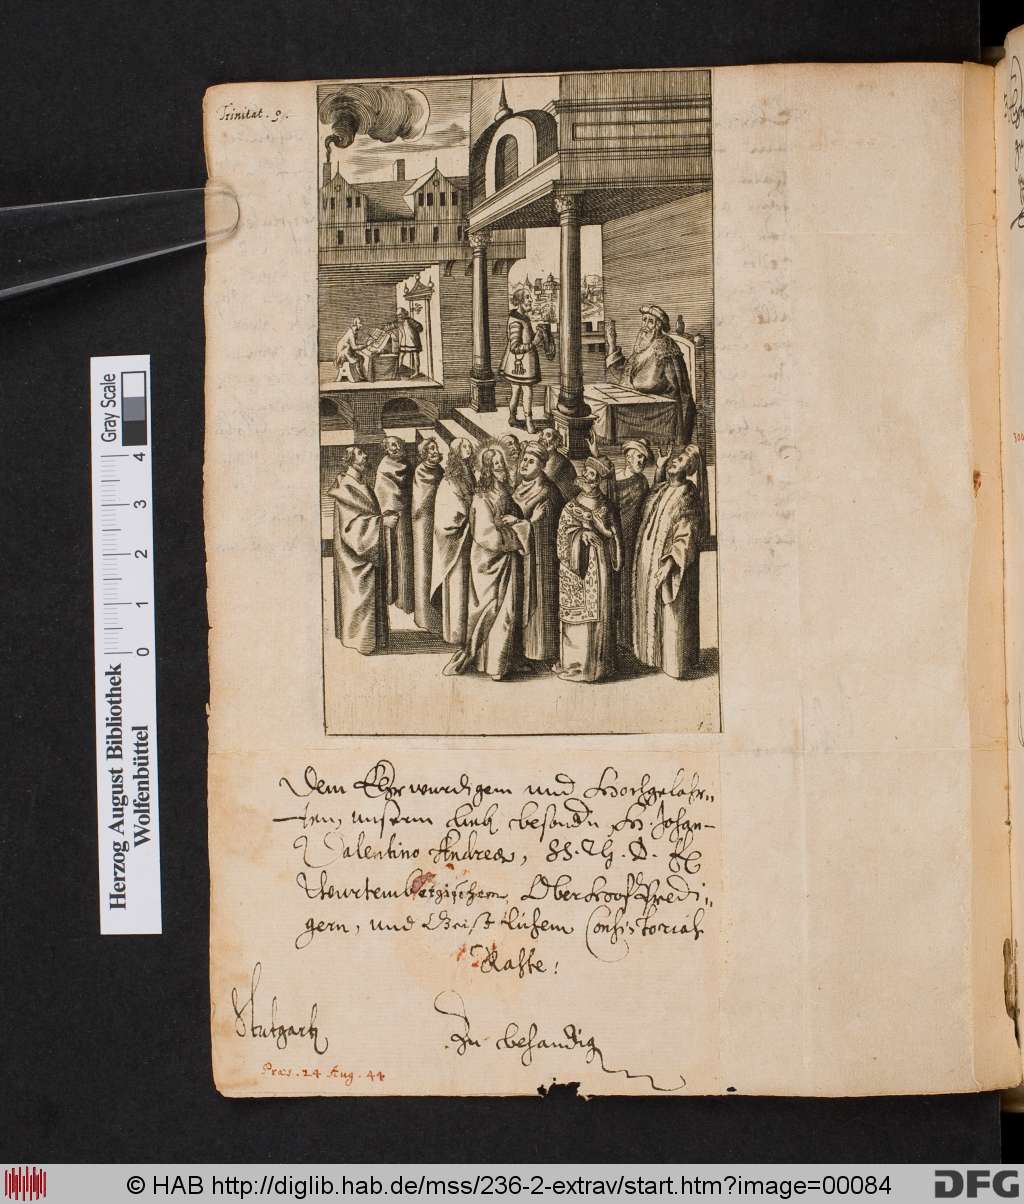 Trinitat. 9.
Dem Ehrwurdigem und Hochgelahr-
ten, unserm lieb besondn H. Johan-
Valentino Andreæ, SS. Th. D. Fl
Wurtembergischem Oberhooff Predi-
gern, und Geistlichem Consistorial
Rahte:
Stutgart
Zu behandig
Præs. 24 Aug. 44
Herzog August Bibliothek
Wolfenbüttel
Gray Scale
0 1 2 3 4
© HAB http://diglib.hab.de/mss/236-2-extrav/start.htm?image=00084
DFG